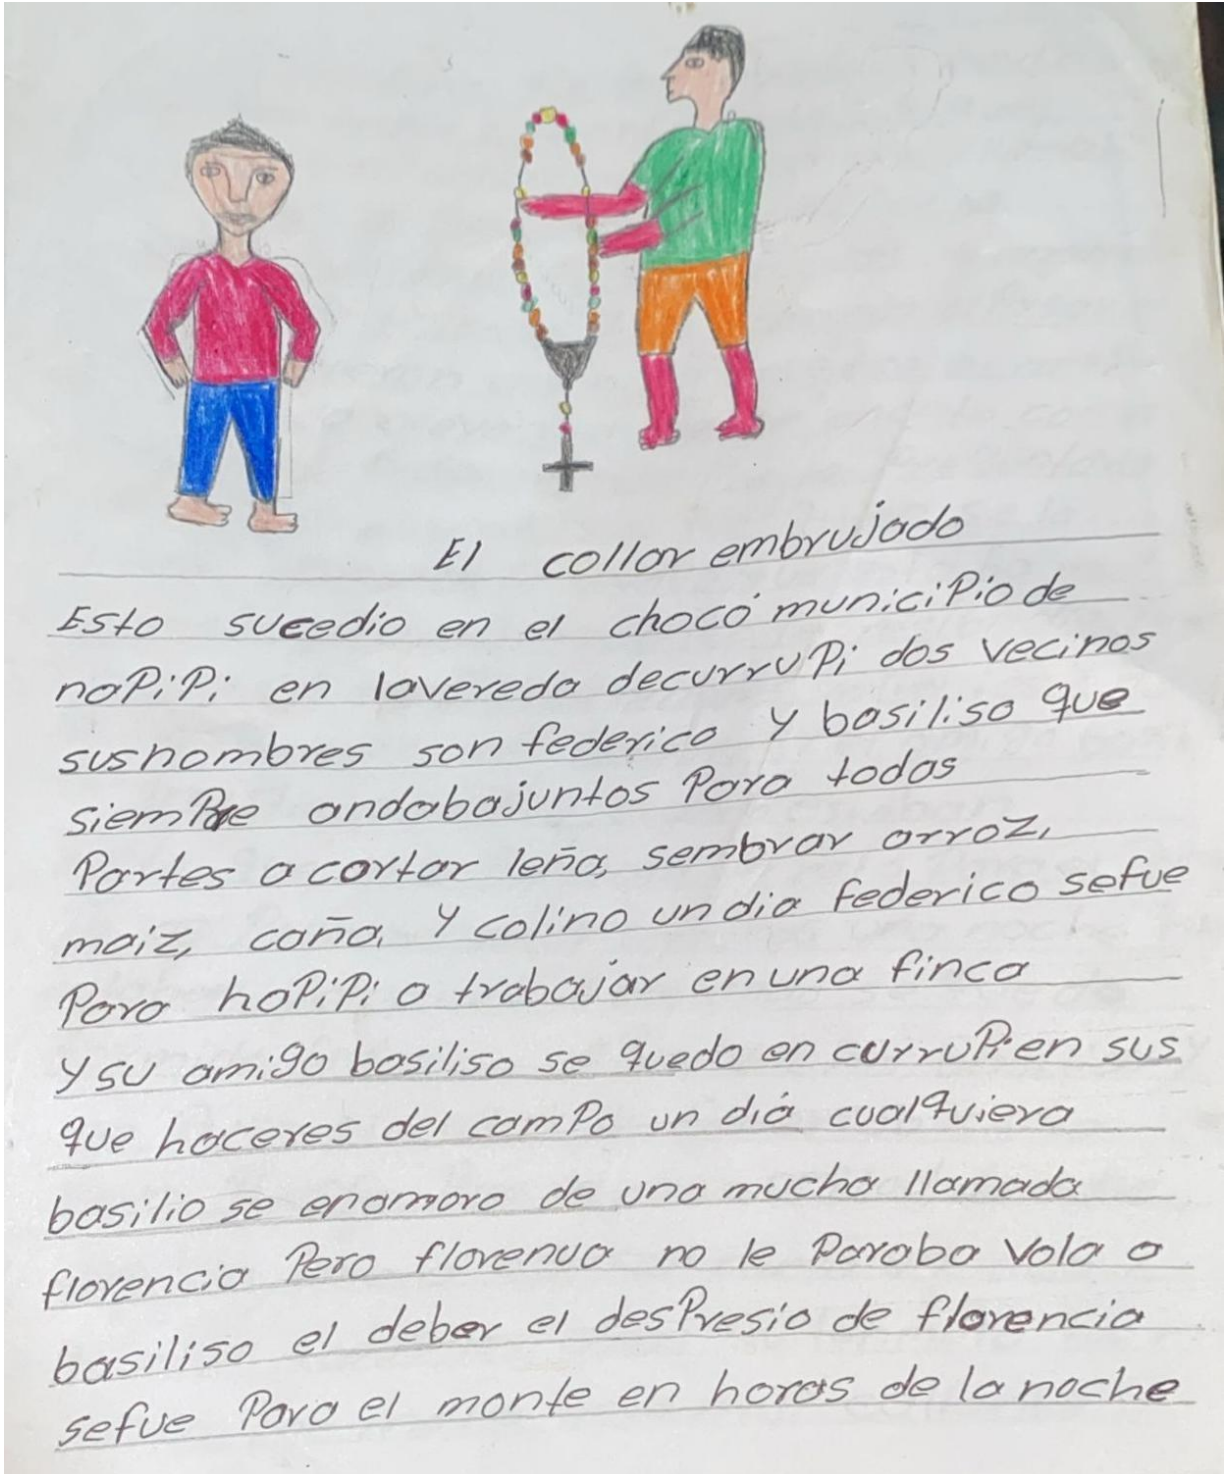 El collar embrujado
Esto sucedio en el chocó municipio de
noPiPi en lavereda decurruPi dos vecinos
susnombres son federico y basiliso que
siemPre andabajuntos Para todas
Partes a cortar leña, sembrar arroz,
maiz, caña, y colino un dia federico sefue
Para hoPiPi a trabajar en una finca
y su amigo basiliso se quedo en curruPi en sus
que haceres del camPo un diá cualquiera
basilio se enamoro de una mucha llamada
florencia Pero florenua no le Paraba Vola a
basiliso el deber el desPresio de florencia
sefue Para el monte en horas de la noche